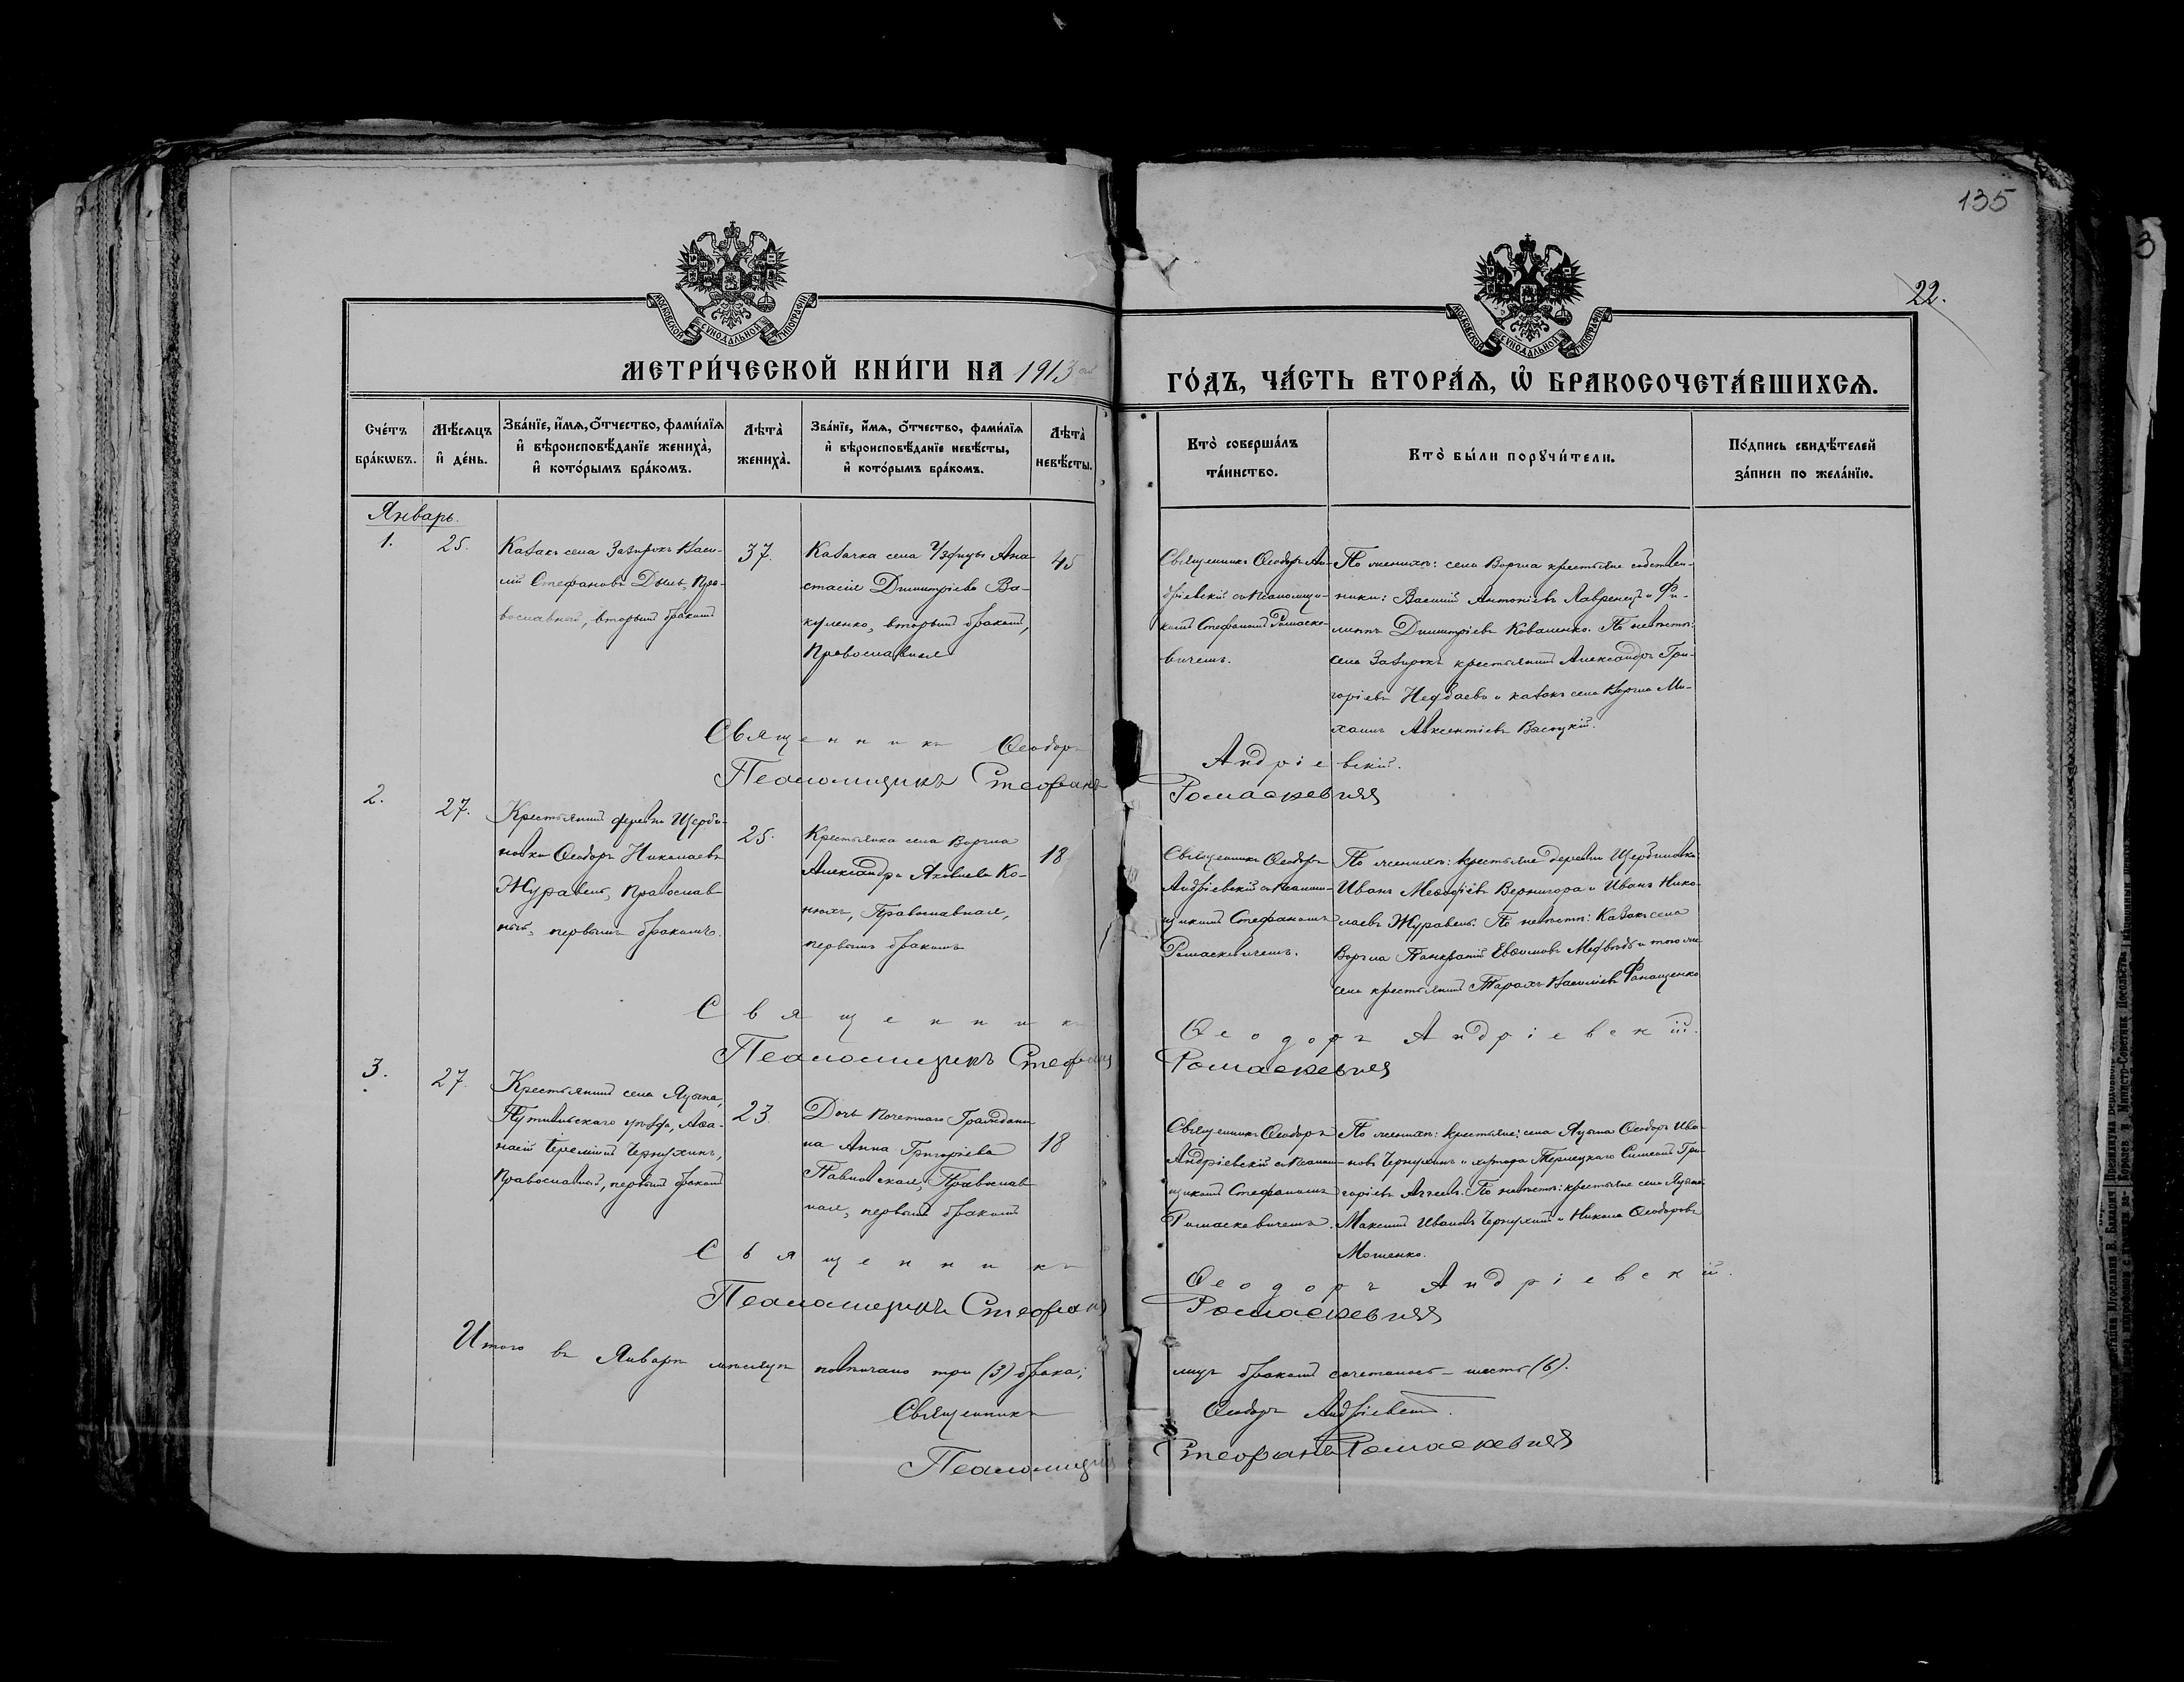 135
22.
МОСКОВСКОЙ СѴНОДАЛЬНОЙ ТИПОГРАФІИ
МОСКОВСКОЙ СѴНОДАЛЬНОЙ ТИПОГРАФІИ
МЕТРИ́ЧЕСКОЙ КНИ́ГИ НА 1913 ой
ГО́ДЪ, ЧА́СТЬ ВТОРА́Ѧ, Ѽ БРАКОСОЧЕТА́ВШИХСѦ.
Сче́тъ бра́кѡвъ.
Мѣ́сѧцъ и҆ де́нь.
Зва́нїе, и҆́мѧ, ѻ҆́тчество, фами́лїѧ и҆ вѣроисповѣ́данїе жениха̀, и҆ кото́рымъ бра́комъ.
Лѣта̀ жениха̀.
Зва́нїе, и҆́мѧ, ѻ҆́тчество, фами́лїѧ и҆ вѣроисповѣ́данїе невѣ́сты, и҆ кото́рымъ бра́комъ.
Лѣта̀ невѣ́сты.
Кто̀ соверша́лъ та́инство.
Кто̀ бы́ли порꙋчи́тели.
По́дпись свидѣ́телей за́писи по жела́нїю.
Январь.
1.
25.
Казакъ села Зазирокъ Васи-
лій Стефановъ Дышъ, Пра-
вославный, вторымъ бракомъ
37.
Казачка села Уздицы Ана-
стасія Димитріева Ва-
куленко, вторымъ бракомъ,
Православная
45
Священникъ Ѳеодоръ Ан-
дріевскій съ Псаломщи-
комъ Стефаномъ Ромаске-
вичемъ.
По женихѣ: села Воргла крестьяне собствен-
ники: Василій Антоніевъ Лавренецъ и Фи-
липпъ Димитріевъ Коваленко. По невѣстѣ:
села Зазирокъ крестьянинъ Александръ Гри-
горіевъ Недбаевъ и казакъ села Воргла Ми-
хаилъ Авксентіевъ Высоцкій.
Священникъ Ѳеодоръ Андріевскій.
Псаломщикъ Стефанъ Ромаскевичъ
2.
27.
Крестьянинъ деревни Щерби-
новки Ѳеодоръ Николаевъ
Журавель, Православ-
ный, первымъ бракомъ.
25.
Крестьянка села Воргла
Александра Яковлева Ко-
нюхъ, Православная,
первымъ бракомъ
18
Священникъ Ѳеодоръ
Андріевскій съ Псалом-
щикомъ Стефаномъ
Ромаскевичемъ.
По женихѣ: крестьяне деревни Щербиновки:
Иванъ Меѳодіевъ Вернигора и Иванъ Нико-
лаевъ Журавель. По невѣстѣ: Казакъ села
Воргла Панкратій Евѳимовъ Медвѣдь и того же
села крестьянинъ Тарахъ Василіевъ Фанащенко
Священникъ Ѳеодоръ Андріевскій.
Псаломщикъ Стефанъ Ромаскевичъ
3.
27.
Крестьянинъ села Яцына,
Путивльскаго уѣзда, Аѳа-
насій Іереміинъ Чернухинъ,
Православный, первымъ бракомъ
23.
Дочь Почетнаго Граждани-
на Анна Григоріева
Павловская, Православ-
ная, первымъ бракомъ
18
Священникъ Ѳеодоръ
Андріевскій съ Псалом-
щикомъ Стефаномъ
Ромаскевичемъ.
По женихѣ: крестьяне: села Яцына Ѳеодоръ Ива-
новъ Чернухинъ и хутора Терлецкаго Симеонъ Гри-
горіевъ Агеевъ. По невѣстѣ: крестьяне села Яцына
Максимъ Ивановъ Чернухинъ и Никола Ѳеодоровъ
Мошенко.
Священникъ Ѳеодоръ Андріевскій.
Псаломщикъ Стефанъ Ромаскевичъ
Итого въ Январѣ мѣсяцѣ повѣнчано три (3) брака; лицъ бракомъ сочеталось – шесть (6).
Священникъ Ѳеодоръ Андріевскій.
Псаломщикъ Стефанъ Ромаскевичъ